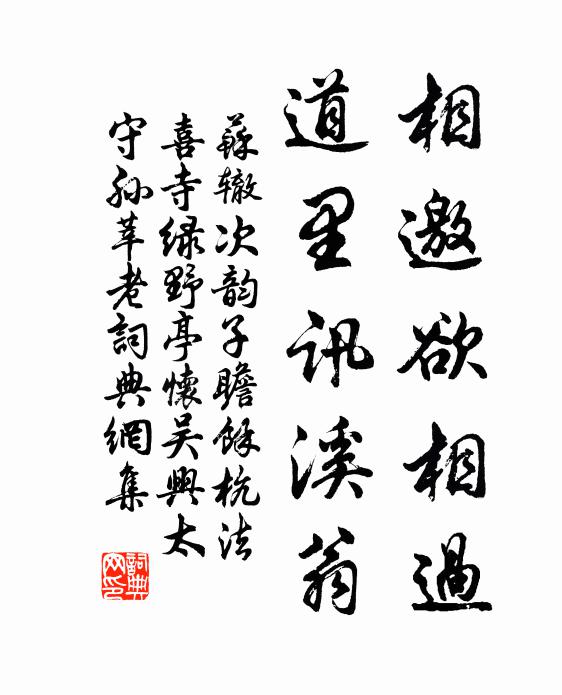 相邀欲相過
道里訊溪翁
蘇辙次韵子瞻餘杭法
喜寺绿野亭懷吴興太
守孙莘老詞典網集
詞典
网印